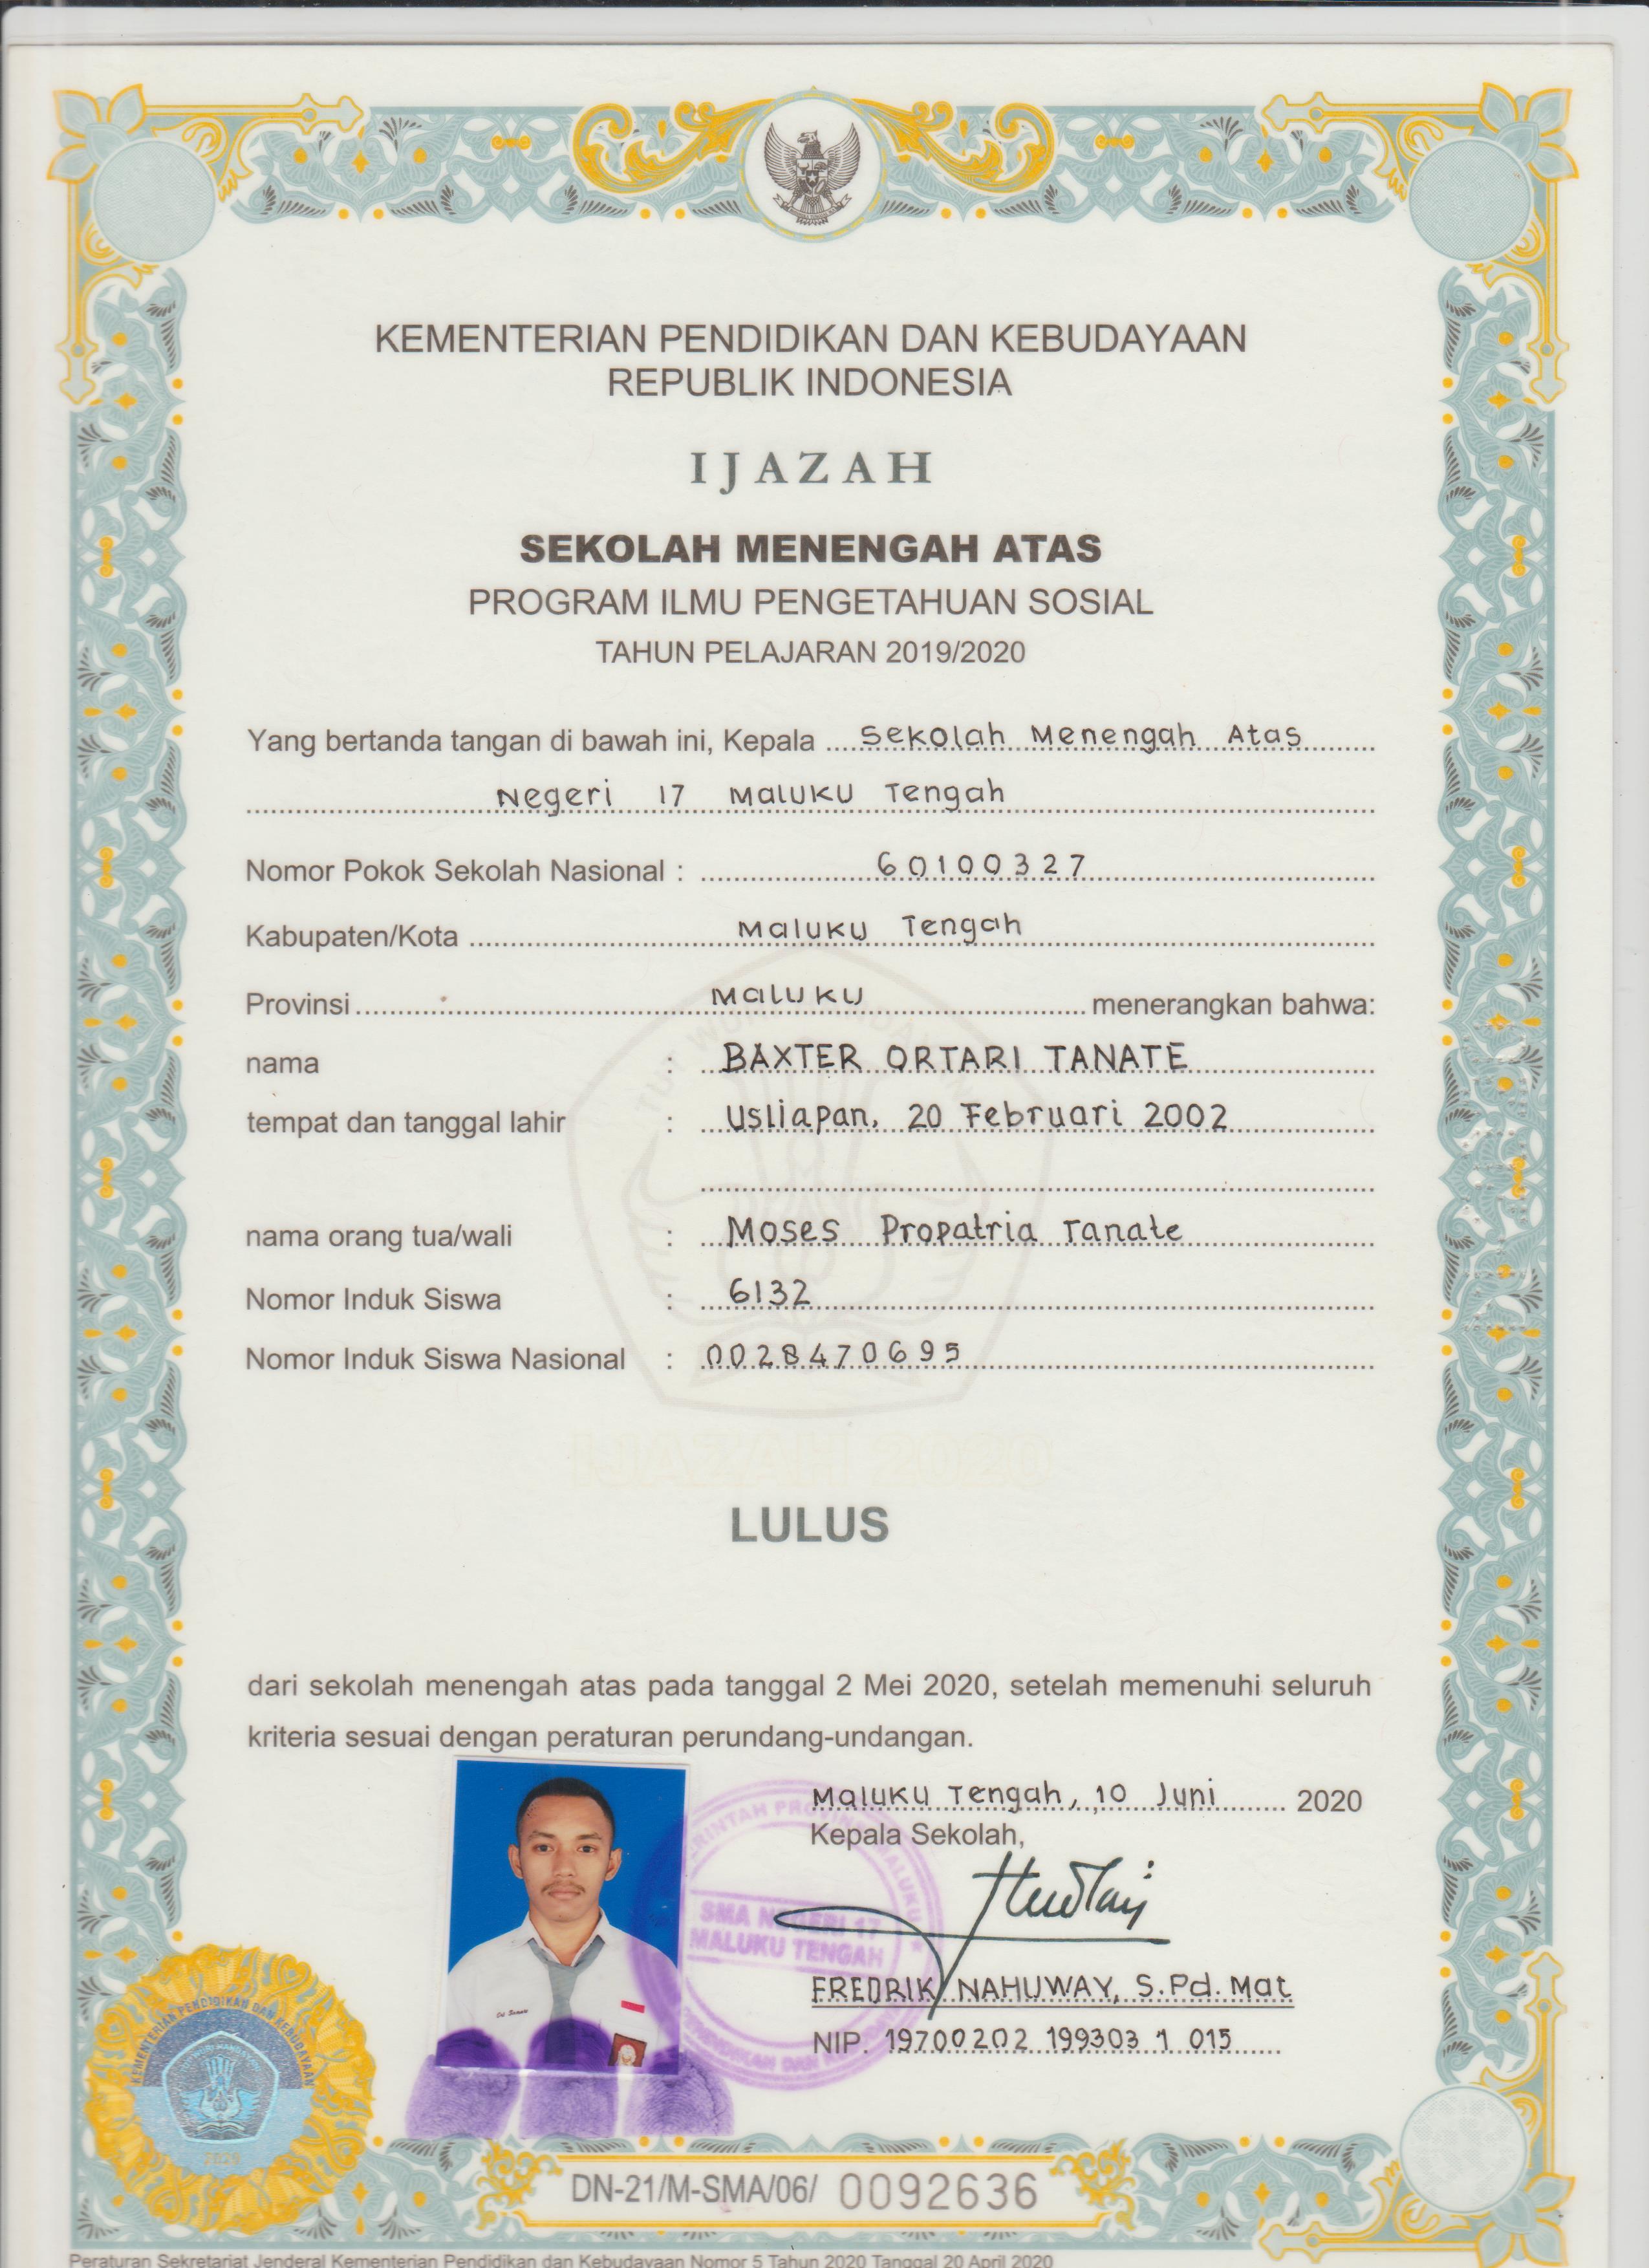 KEMENTERIAN PENDIDIKAN DAN KEBUDAYAAN
REPUBLIK INDONESIA
IJAZAH
SEKOLAH MENENGAH ATAS
PROGRAM ILMU PENGETAHUAN SOSIAL
TAHUN PELAJARAN 2019/2020
Yang bertanda tangan di bawah ini, Kepala Sekolah Menengah Atas
Negeri 17 Maluku Tengah
Nomor Pokok Sekolah Nasional : 60100327
Kabupaten/Kota Maluku Tengah
Provinsi Maluku menerangkan bahwa:
nama : BAXTER ORTARI TANATE
tempat dan tanggal lahir : Usliapan, 20 Februari 2002
nama orang tua/wali : Moses Propatria Tanate
Nomor Induk Siswa : 6132
Nomor Induk Siswa Nasional : 0028470695
IJAZAH 2020
LULUS
dari sekolah menengah atas pada tanggal 2 Mei 2020, setelah memenuhi seluruh
kriteria sesuai dengan peraturan perundang-undangan.
Maluku Tengah, 10 Juni 2020
Kepala Sekolah,
SMA NEGERI 17
MALUKU TENGAH
FREDRIK NAHUWAY, S.Pd. Mat
NIP. 19700202 199303 1 015
KEMENTERIAN PENDIDIKAN DAN KEBUDAYAAN
2020
DN-21/M-SMA/06/ 0092636
Peraturan Sekretariat Jenderal Kementerian Pendidikan dan Kebudayaan Nomor 5 Tahun 2020 Tanggal 20 April 2020